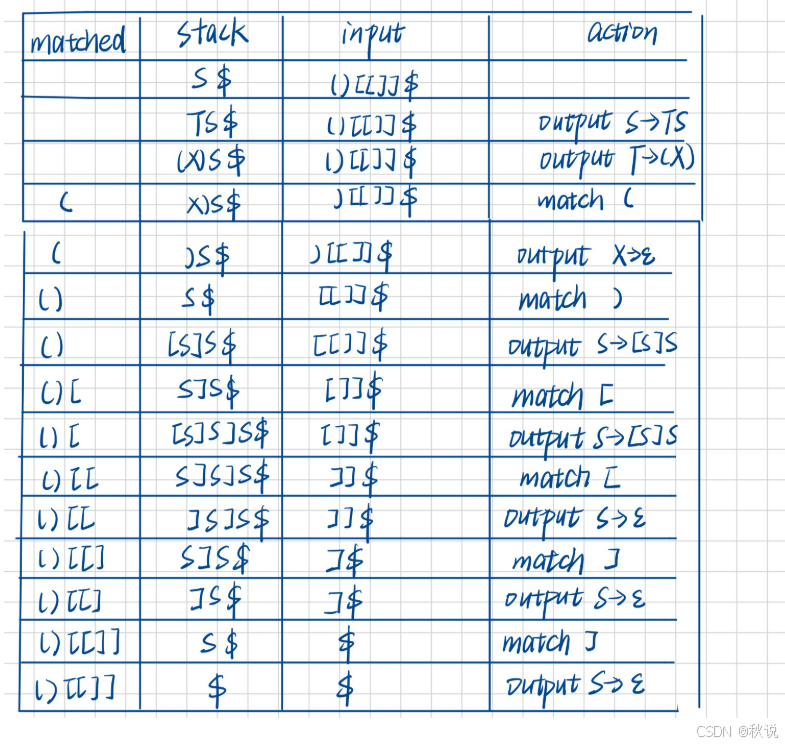 matched stack input action
S$ ()[[]]$
TS$ ()[[]]$ output S→TS
(X)S$ ()[[]]$ output T→(X)
( X)S$ )[[]]$ match (
( )S$ )[[]]$ output X→ε
() S$ [[]]$ match )
() [S]S$ [[]]$ output S→[S]S
()[ S]S$ []]$ match [
()[ [S]S]S$ []]$ output S→[S]S
()[[ S]S]S$ ]]$ match [
()[[ ]S]S$ ]]$ output S→ε
()[[] S]S$ ]$ match ]
()[[] ]S$ ]$ output S→ε
()[[]] S$ $ match ]
()[[]] $ $ output S→ε
CSDN @秋说